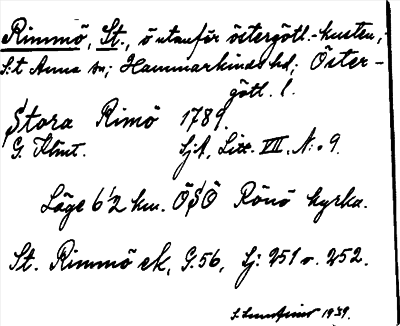 Rimmö, St., ö utanför östergötl.-kusten,
S:t Anna sn; Hammarkinds hd; Öster-
götl. l.
Stora Rimö 1789.
G. Klint. Sjk, Litt. VII. N:o 9.
Läge 6 1/2 km. ÖSÖ Rönö kyrka.
St. Rimmö ek, G. 56, Sj: 251 o. 252.
1939.